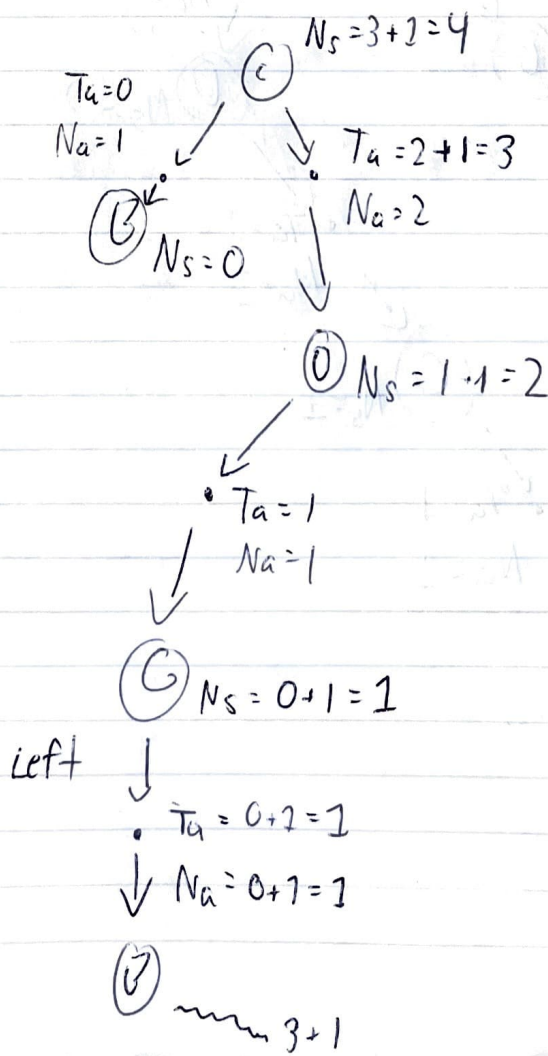 Ns = 3+1 = 4
C
Ta = 0
Na = 1
Ta = 2+1 = 3
Na = 2
B
Ns = 0
D Ns = 1+1 = 2
Ta = 1
Na = 1
G Ns = 0+1 = 1
Left
Ta = 0+1 = 1
Na = 0+1 = 1
3+1